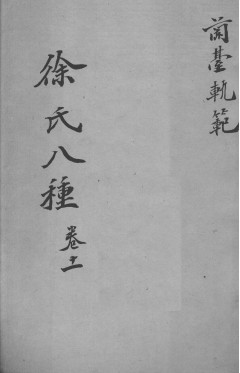 蘭臺軌範
徐氏八種 卷十一